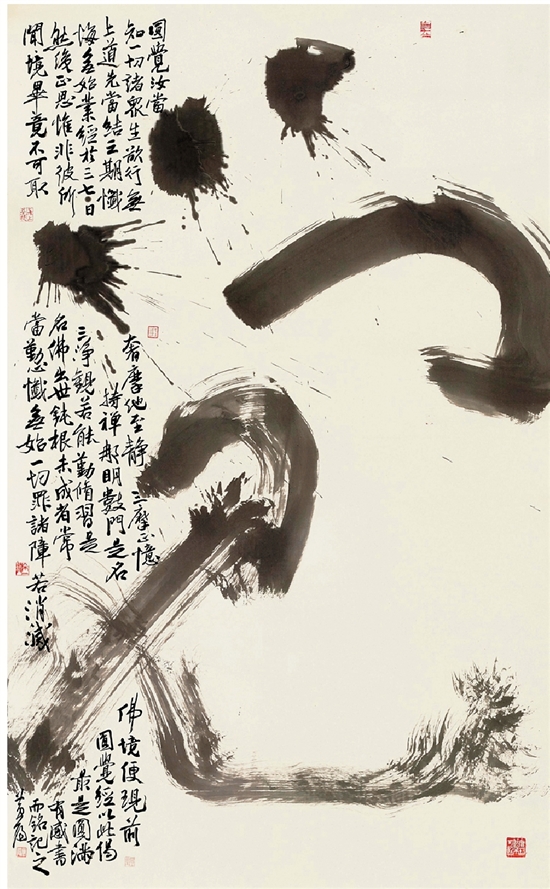 圓覺汝當
知一切諸眾生欲行無
上道先當結三期懺
悔無始業經於三七日
然後正思惟非彼所
聞境畢竟不可取
奢摩他至靜三摩正憶
持禪那明數門是名
三淨觀若能勤脩習是
名佛出世鈍根未成者常
當勤心懺無始一切罪諸障若消滅
佛境便現前
圓覺經以此偈
最是圓滿
有感書
而銘記之